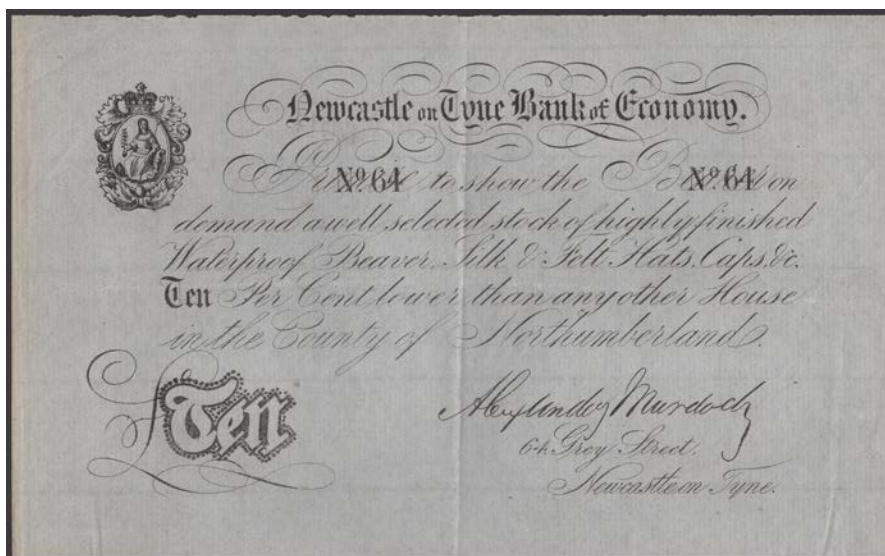 Newcastle on Tyne Bank of Economy.
No. 64 to show the No. 64 on
demand a well selected stock of highly finished
Waterproof Beaver, Silk & Felt Hats, Caps, &c.
Ten Per Cent lower than any other House
in the County of Northumberland.
Ten
Alexander Murdoch
64 Grey Street.
Newcastle on Tyne.